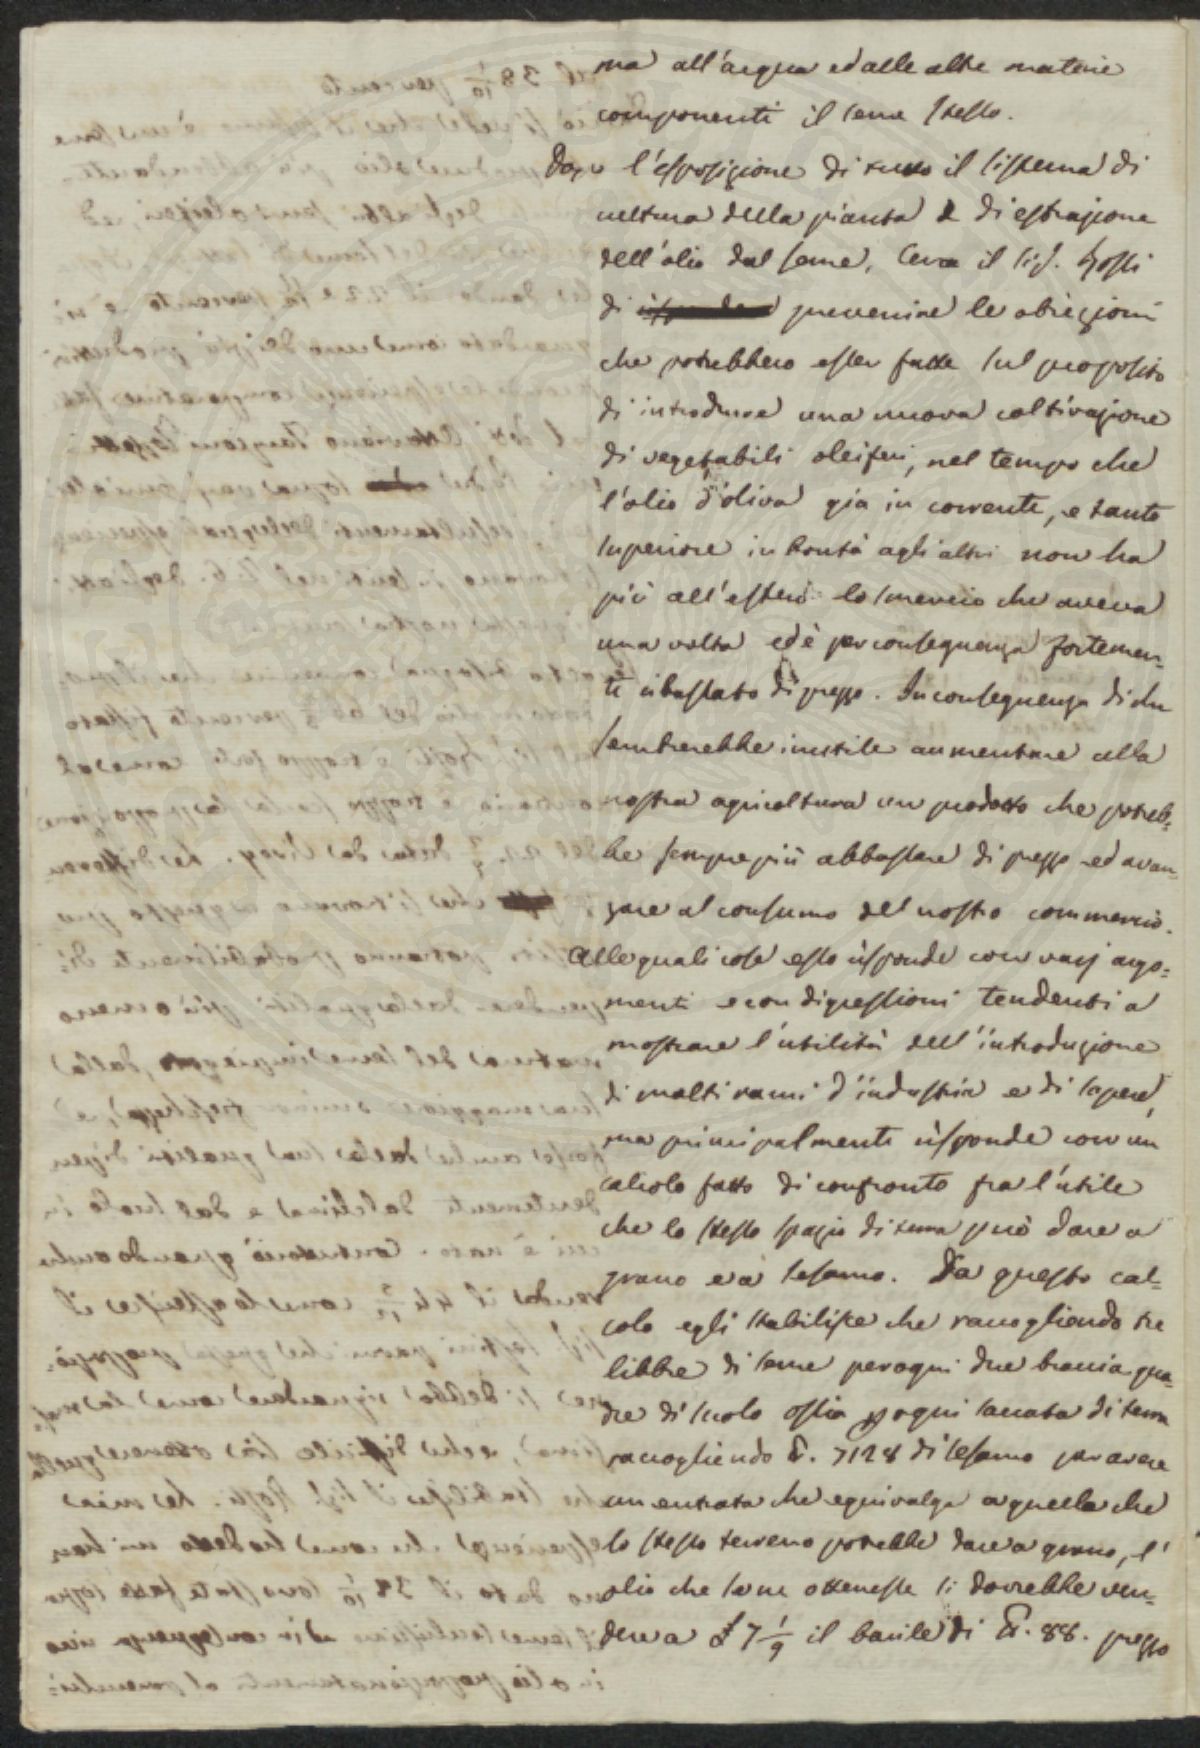 ma all'acqua ed alle altre materie
componenti il seme stesso.
Dopo l'esposizione di tutto il sistema di
cultura della pianta e di estrazione
dell'olio dal seme, cerca il Sig. Gossi
di prevenire le obiezioni
che potrebbero esser fatte sul proposito
di introdurre una nuova coltivazione
di vegetabili oleiferi, nel tempo che
l'olio d'oliva già in corrente, e tanto
superiore in bontà agli altri non ha
più all'estero lo smercio che aveva
una volta ed è per conseguenza fortemen-
te ribassato di prezzo. In conseguenza di che
sembrerebbe inutile aumentare alla
nostra agricoltura un prodotto che potreb-
be sempre più abbassare di prezzo ed avan-
zare al consumo del nostro commercio.
Alle quali cose esso risponde con varj argo-
menti e con digressioni tendenti a
mostrare l'utilità dell'introduzione
di molti rami d'industria e di sapere,
ma principalmente risponde con un
calcolo fatto di confronto fra l'utile
che lo stesso spazio di terra può dare a
grano e a sesamo. Da questo cal-
colo egli stabilisce che raccogliendo tre
libbre di seme per ogni due braccia qua-
dre di suolo ossia p ogni saccata di terra
raccogliendo 7128 di sesamo per avere
un entrata che equivalga a quella che
lo stesso terreno potrebbe dare a grano, l'
olio che se ne ottenesse si dovrebbe ven-
dere a £ 7 1/9 il barile di 88. prezzo